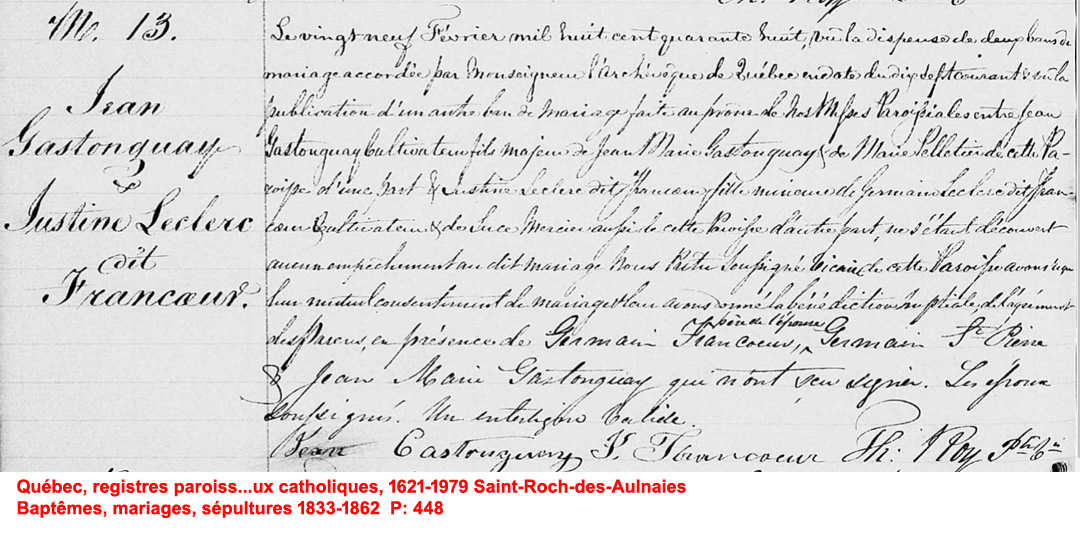 M. 13.
Jean
Gastonguay
&
Justine Leclerc
dit
Francœur.
Le vingt neuf Février mil huit cent quarante huit, vû la dispense de deux bans de
mariage accordée par Monseigneur l'Archevêque de Québec en date du dix sept courant & vû la
publication d'un autre ban de mariage faite au prône de Nos Messes Paroissiales entre Jean
Gastonguay Cultivateur fils majeur de Jean Marie Gastonguay & de Marie Pelletier de cette Pa-
roisse d'une part & Justine Leclerc dit Francœur fille mineure de Germain Leclerc dit Fran-
cœur Cultivateur & de Luce Mercier aussi de cette Paroisse d'autre part, ne s'étant découvert
aucun empêchement au dit mariage Nous Prêtre Soussigné Vicaire de cette Paroisse avons reçu
leur mutuel consentement de mariage & leur avons donné la bénédiction nuptiale, de l'agrément
des Parens, en présence de Germain Francoeur, père de l'épouse Germain St Pierre
& Jean Marie Gastonguay qui n'ont seu signer. Les époux
soussignés. Un interligne valide.
Jean Castonguay J. Francoeur Th: Roy Ptre
Québec, registres paroiss...ux catholiques, 1621-1979 Saint-Roch-des-Aulnaies
Baptêmes, mariages, sépultures 1833-1862 P: 448